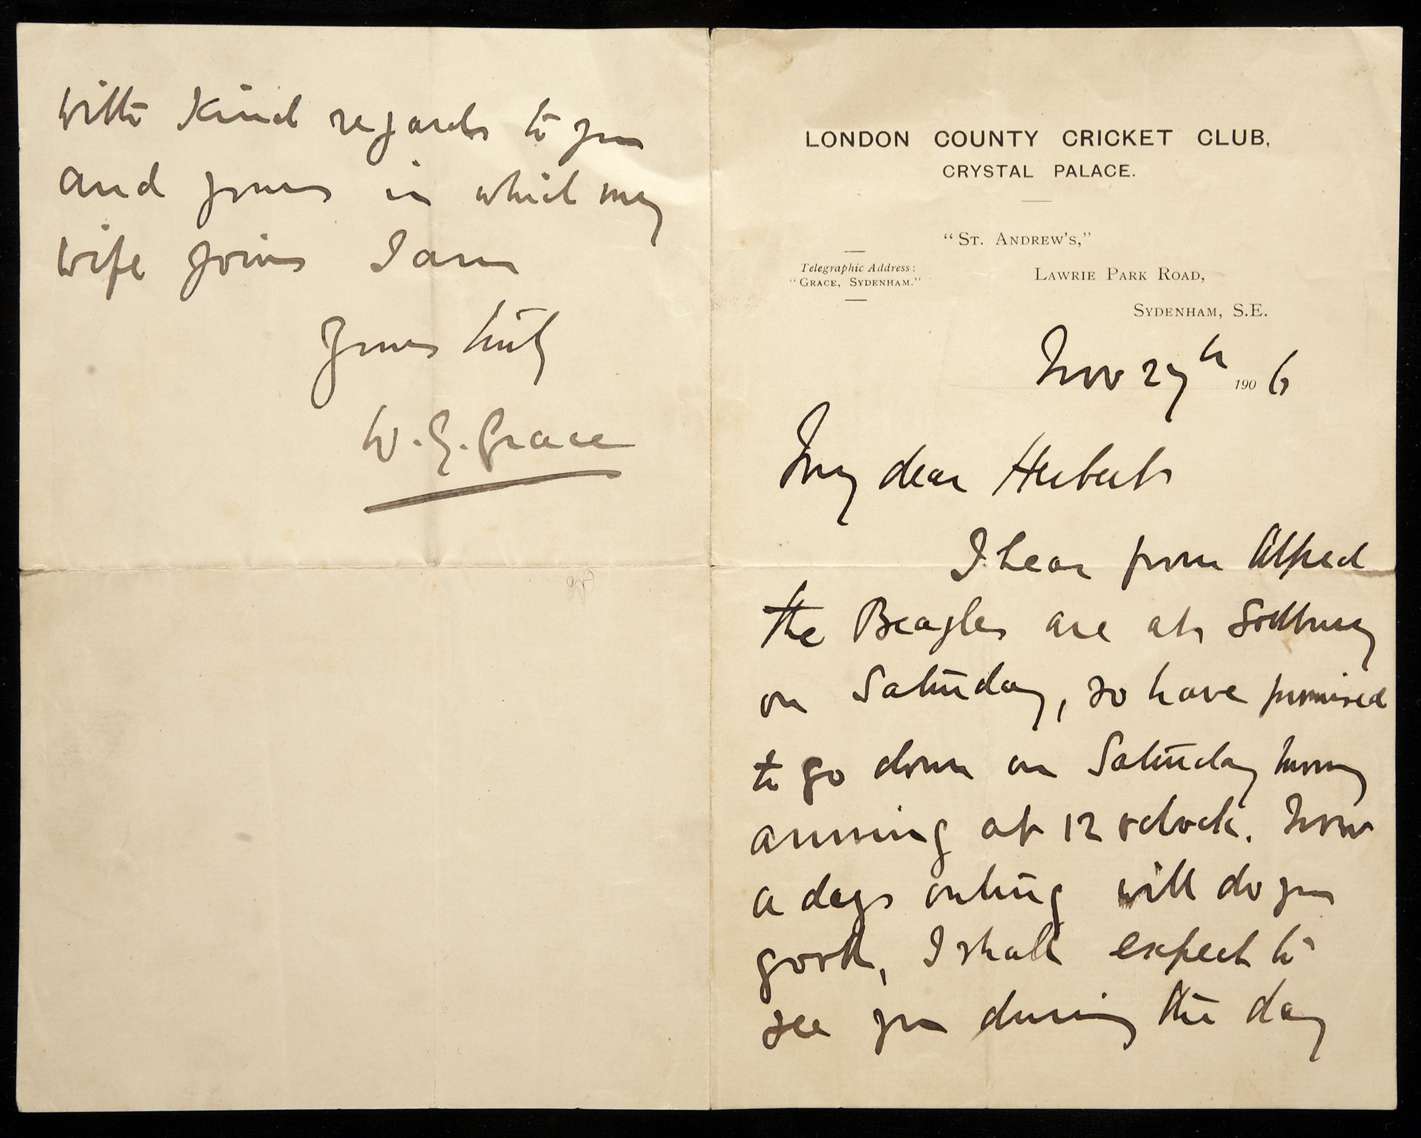 LONDON COUNTY CRICKET CLUB,
CRYSTAL PALACE.
"ST. ANDREW'S,"
Telegraphic Address:
"GRACE, SYDENHAM."
LAWRIE PARK ROAD,
SYDENHAM, S.E.
Nov 27th 1906
My dear Herbert
I hear from Alfred
the Beagles are at Sodbury
on Saturday, so have promised
to go down on Saturday
arriving at 12 oclock. Now
a days outing will do you
good, I shall expect to
see you during the day
with kind regards to you
and yours in which my
wife joins I am
Yours truly
W. G. Grace